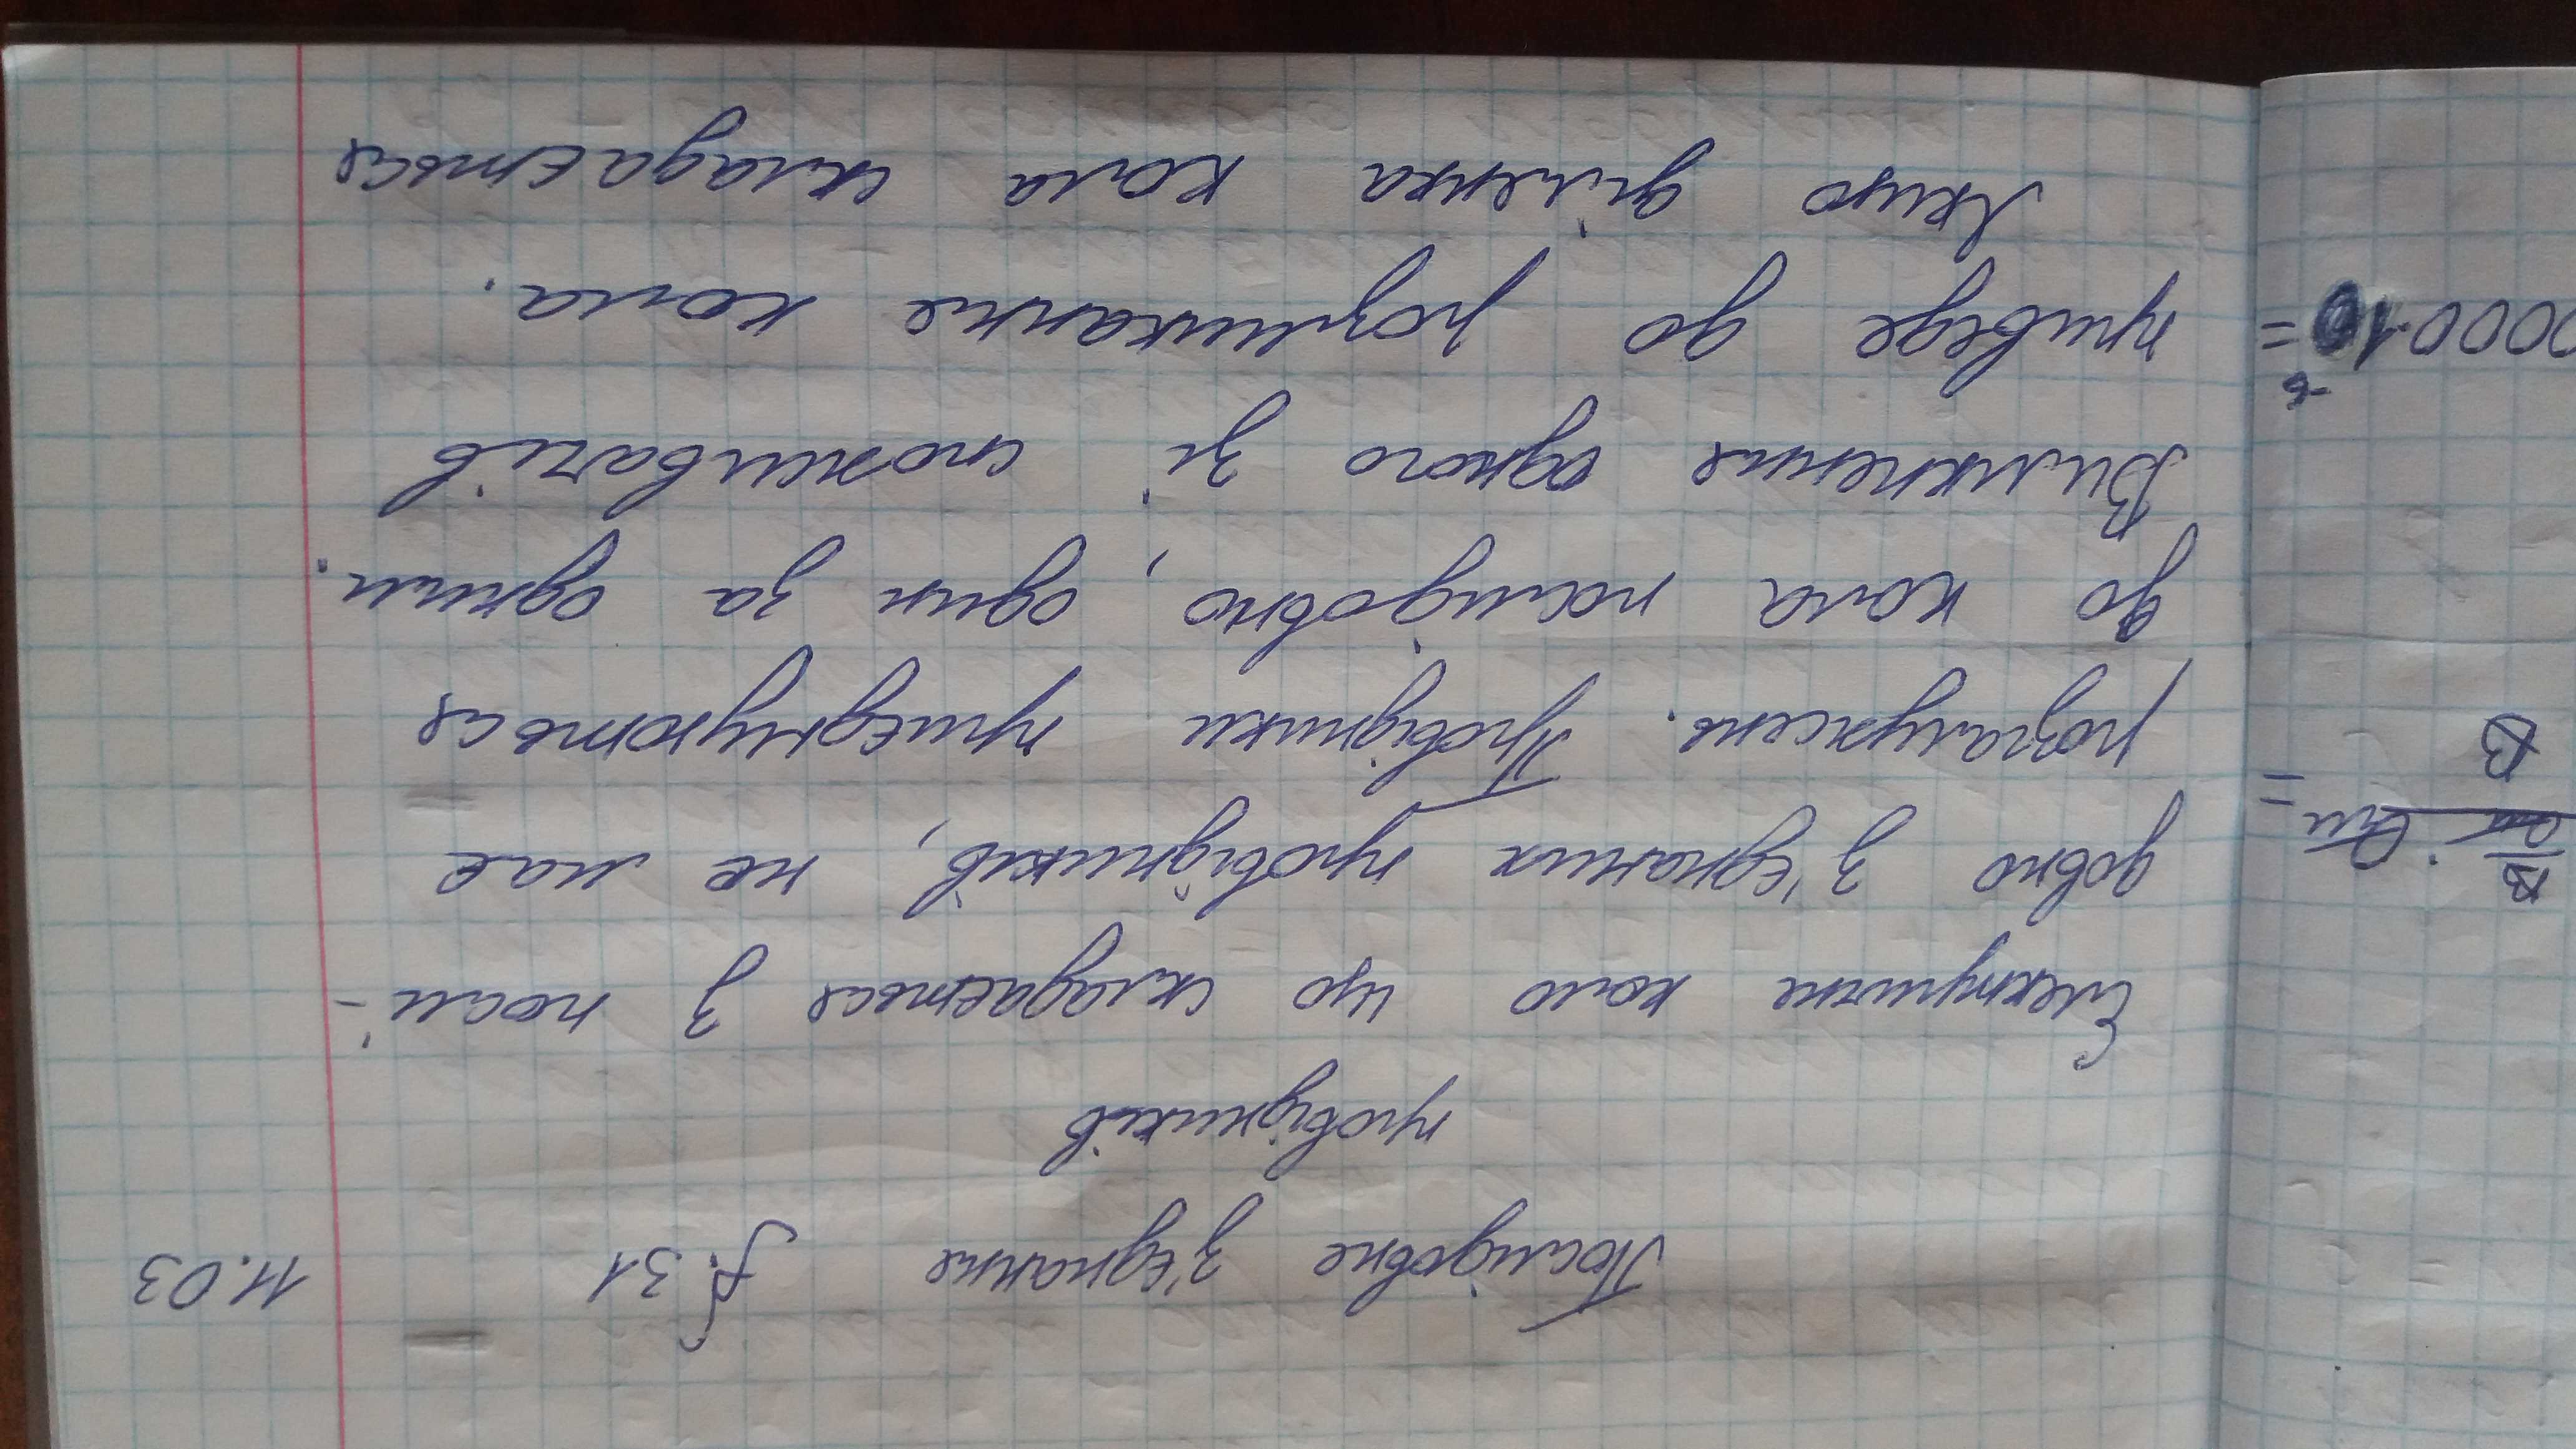 Послідовне з'єднання §.31 11.03
провідників
Електричне коло що складається з послі-
довно з'єднаних провідників, не має
розгалужень. Провідники приєднуються
до кола послідовно, один за одним.
Вимкнення одного зі споживачів
приведе до розмикання кола.
Якщо ділянка кола складається
000·10⁻⁶=